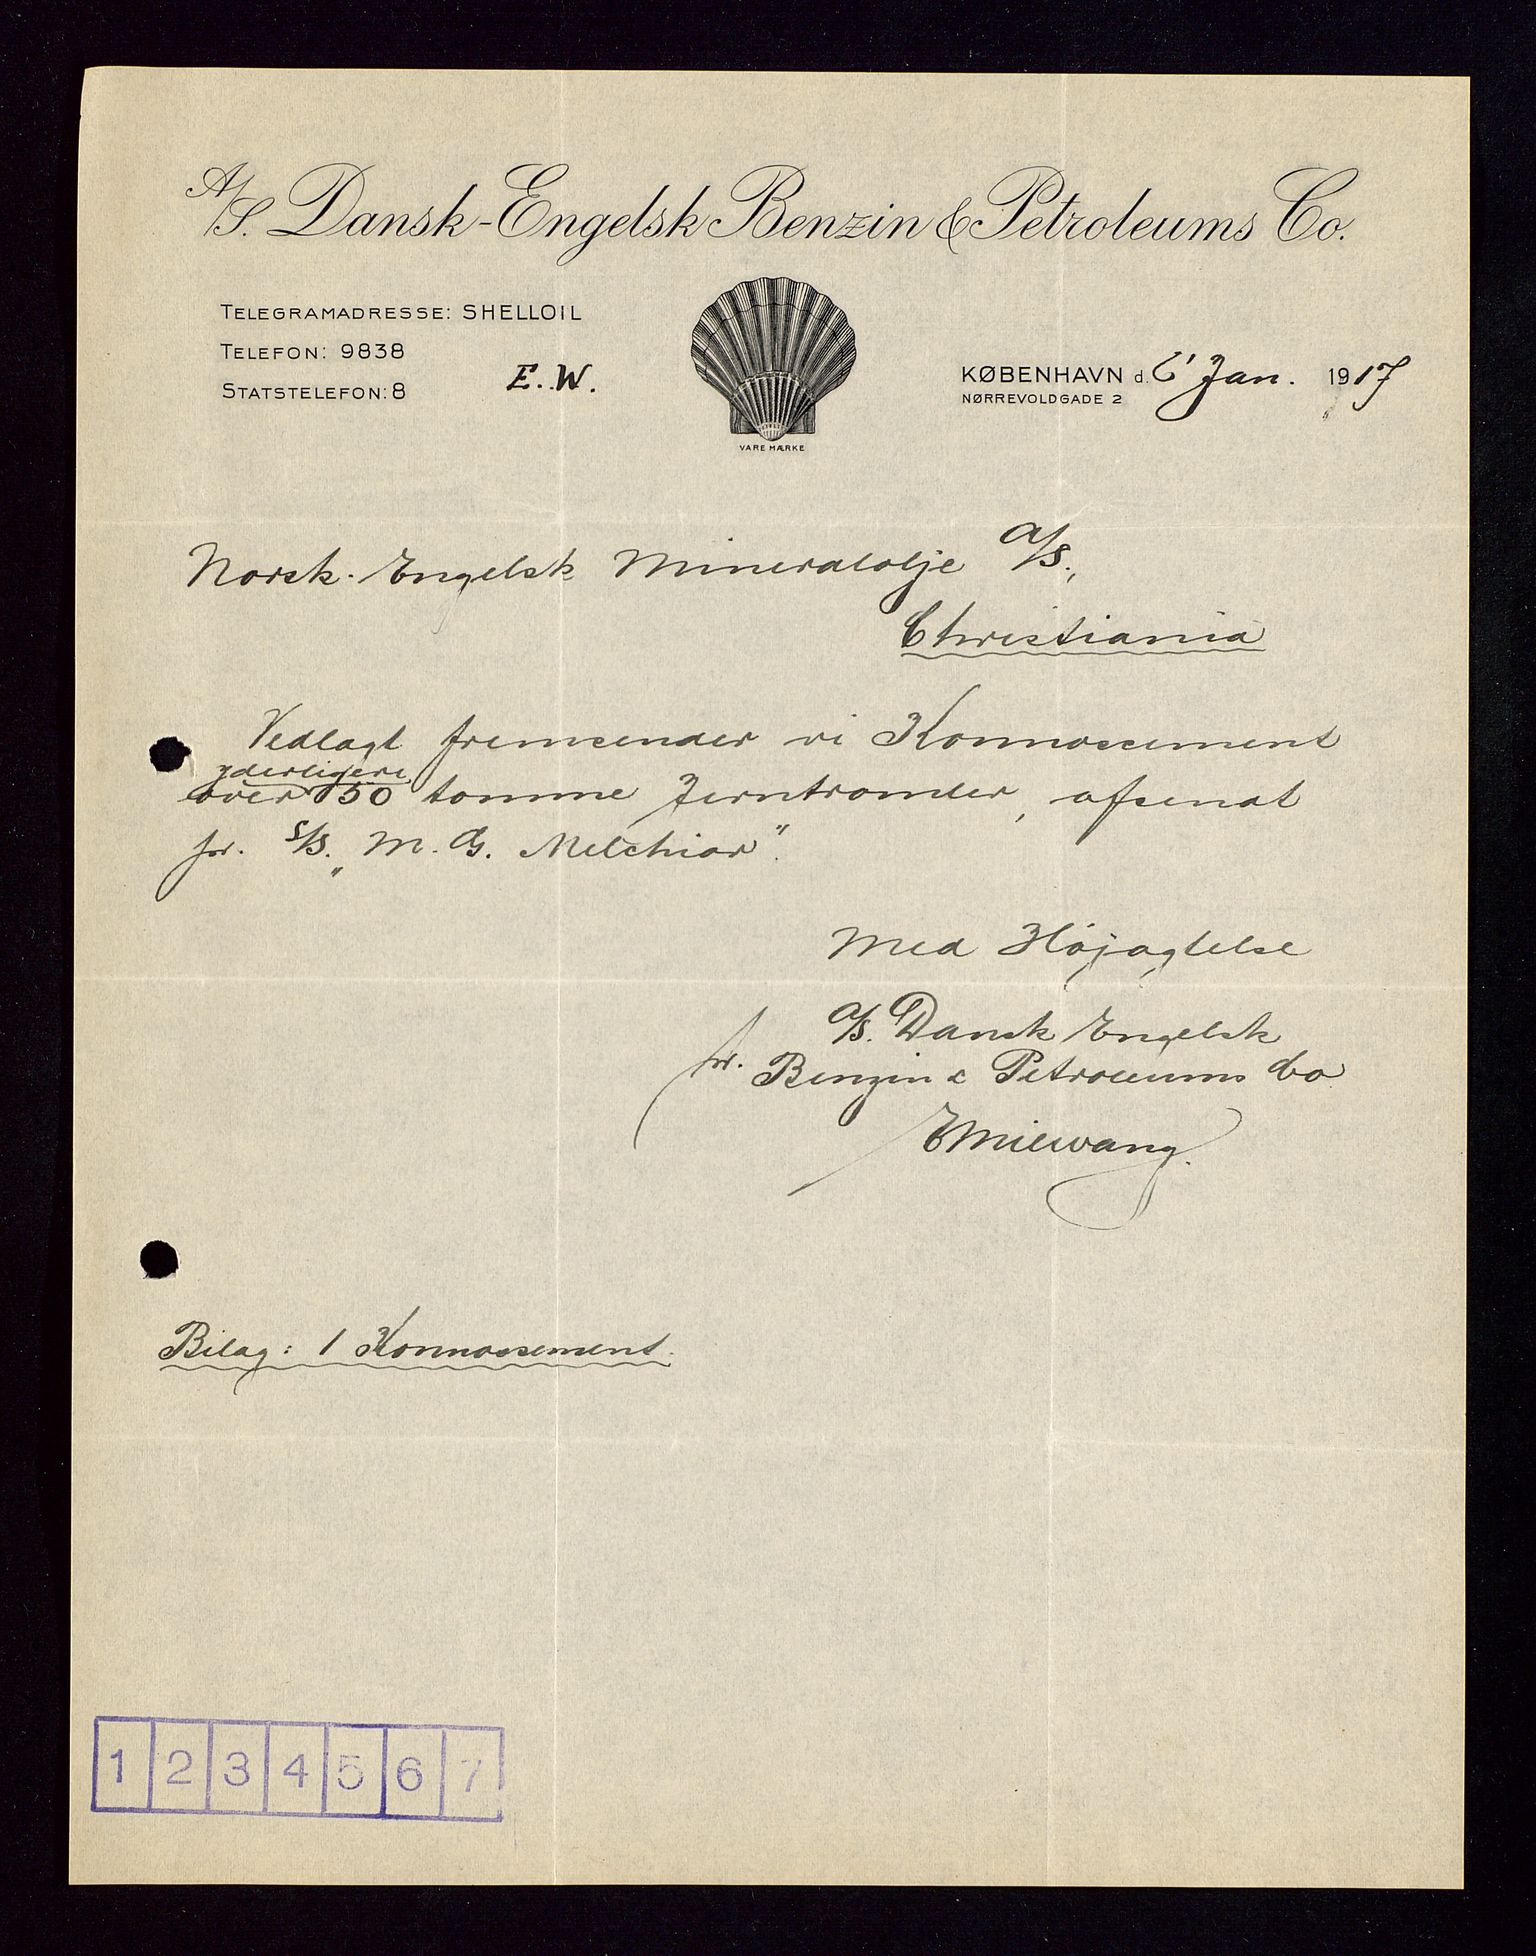 A/S. Dansk-Engelsk Benzin & Petroleums Co.
TELEGRAMADRESSE: SHELLOIL
TELEFON: 9838
STATSTELEFON: 8
E.W.
VARE MÆRKE
KØBENHAVN d. 6' Jan. 1917
NØRREVOLDGADE 2
Norsk-Engelsk Mineralolje A/S.,
Christiania
Vedlagt fremsender vi Konnossement
yderligere
over 50 tomme Jerntromler, afsendt
pr. S/S. „M. G. Melchior".
Med Højagtelse
A/S. Dansk Engelsk
pr. Benzin & Petroleums Co
Bilag: 1 Konnossement.
1 2 3 4 5 6 7